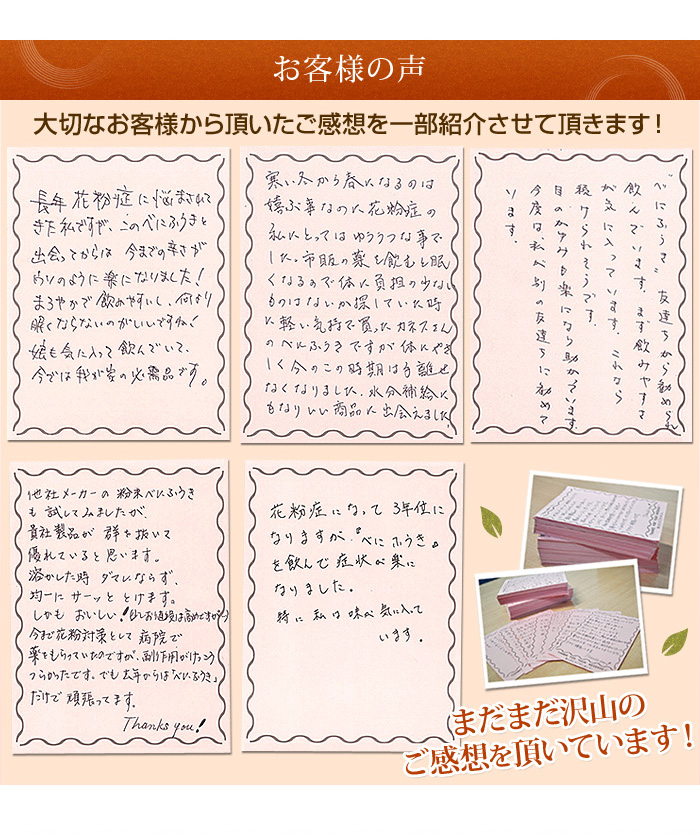 お客様の声
大切なお客様から頂いたご感想を一部紹介させて頂きます！
長年 花粉症に悩まされて
きた私ですが、このべにふうきと
出会ってからは 今までの辛さが
ウソのように楽になりました！
まろやかで飲みやすいし、何より
眠くならないのがいいですね！
娘も気に入って飲んでいて、
今では我が家の必需品です。
寒い冬から春になるのは
嬉ぶ事なのに花粉症の
私にとってはゆううつな事で
した。市販の薬を飲むと眠
くなるので体に負担の少ない
ものはないか探していた時
に軽い気持で買ったカネスさん
のべにふうきですが体にやさ
しく今のこの時期は手離せ
なくなりました。水分補給に
もなりいい商品に出会えました。
"べにふうき" 友達から勧められ
飲んでいます。まず飲みやすさ
が気に入っています。これなら
続けられそうです。
目のかゆみも楽になり助かっています。
今度は、私が別の友達に勧めて
います。
他社メーカーの粉末べにふうき
も試してみましたが、
貴社製品が 群を抜いて
優れていると思います。
溶かした時 ダマにならず、
均一に サーッと とけます。
しかも おいしい！(少しお値段は高めですが)
今まで花粉対策として 病院で
薬をもらっていたのですが、副作用がけっこう
つらかったです。でも去年からは「べにふうき」
だけで 頑張ってます。
Thanks you!
花粉症になって 3年位に
なりますが、『べにふうき』
を飲んで 症状が楽に
なりました。
特に 私は 味が気に入って
います。
まだまだ沢山の
ご感想を頂いています！